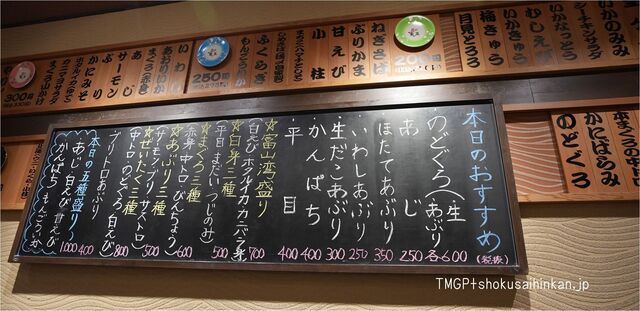 本日のおすすめ
(税抜)
のどぐろ(生あぶり) 各600
あじ 250
ほたてあぶり 350
いわしあぶり 250
生だこあぶり 300
かんぱち 400
平目 400
☆富山湾盛り
(白えび ホタルイカ カニバラ身) 700
☆白身三種
(平目 まだい つじのみ) 500
☆まぐろ三種
(赤身 中トロ びんちょう) 600
☆あぶり三種
(サーモン ブリ サストロ) 500
☆ぜいたく三種
(中トロ のどぐろ 白えび) 800
ブリトロあぶり 400
本日の五種盛り
あじ 白えび 甘えび
かんぱち もんごういか 1,000
のどぐろ
かにばらみ
本まぐろの
シーチキンサラダ
いかなっとう
むしえび
いかきゅう
梅きゅう
月見とろろ
200円
ねぎさば
かにかま
ぶり
甘えび
小柱
ふくらぎ
もんごういか
250円
いわし
あおりいか
まぐろ(赤身)
あじ
サーモン
かにみそ
カニマヨサラダ
300円
TMGP+shokusaihinkan.jp